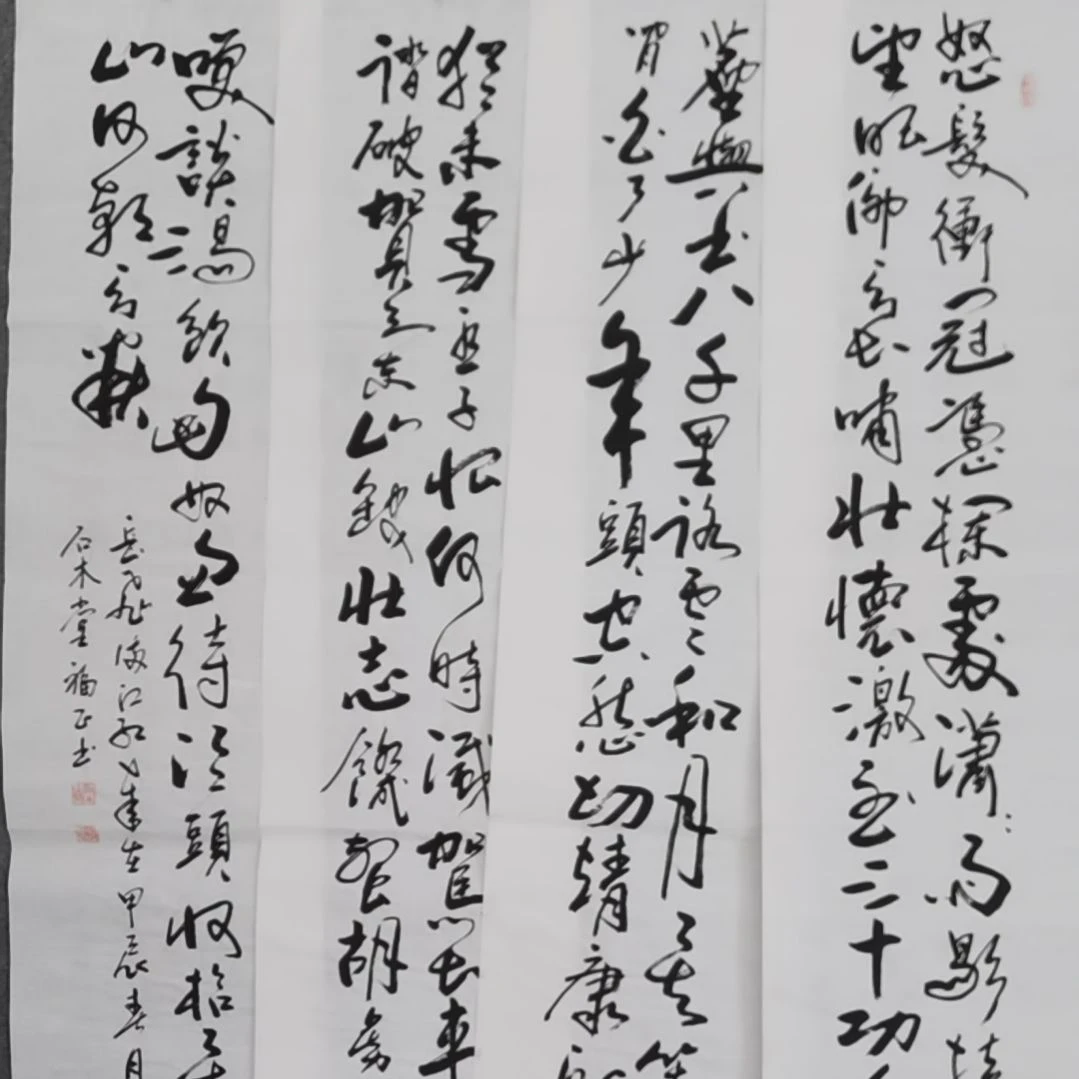 怒髮衝冠憑欄處瀟瀟雨歇抬
望眼仰天長嘯壯懷激烈三十功
塵與土八千里路雲和月莫等
閒白了少年頭空悲切靖康恥
猶未雪臣子恨何時滅駕長車
踏破賀蘭山缺壯志飢餐胡虜
笑談渴飲匈奴血待從頭收拾舊
山河朝天闕
岳飛滿江紅歲在甲辰春月
石木堂福正书